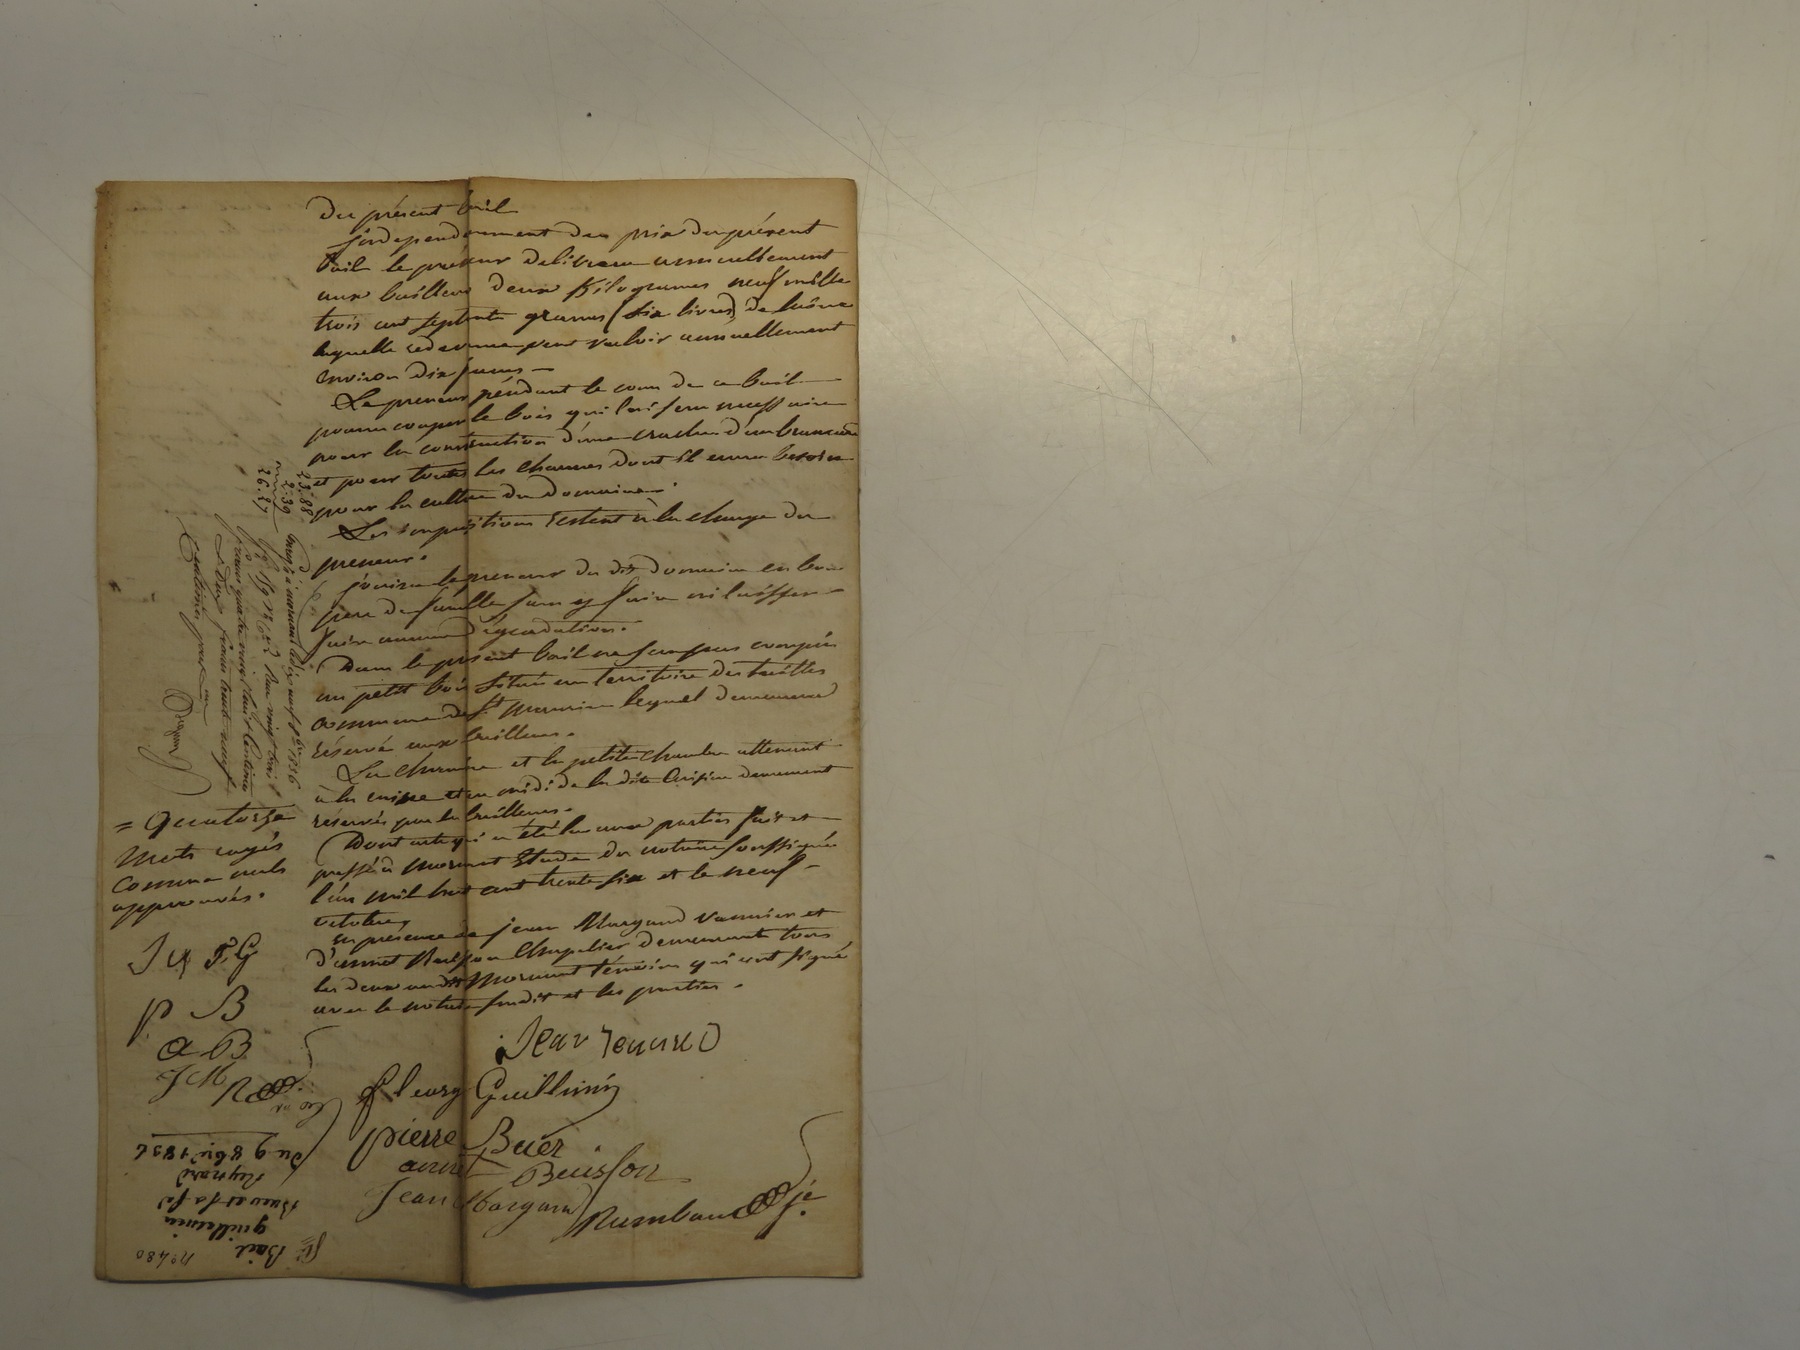 Du présent bail
Independemment du prix du présent
bail le preneur delivrera annuellement
aux bailleurs deux Kilogrames neuf mille
trois cent septente grames (six livres) de laine
laquelle redevance peut valoir annuellement
environ dix francs —
Le preneur pendant le cours de ce bail
pourra couper le bois qui lui sera necessaire
pour la construction d'une d'un brancard
et pour toutes les charrues dont il aura besoin
pour la culture du Domaine.
Les impositions restent à la charge du
preneur.
jouira le preneur du dit domaine en bon
pere de famille sans y faire ni laisser
faire aucune dégradation.
Dans le present bail ne sera pas compris
un petit bois situé au territoire des
commune de St maurice lequel demeurera
réservé aux bailleurs.
La et la petite chambre attenant
à la cuisine et au midi de la dite cuisine demeurent
réservés par les bailleurs.
Dont acte qui a été lu aux parties fait et
passé à mornant Etude du notaire soussigné
l'an mil huit cent trente six et le neuf
octobre
en présence de jean Margand vannier et
d'annet Buisson Chapelier demeurants tous
les deux au dit Mornant témoins qui ont signé
avec le notaire susdit et les parties.
Jean
fleury Guillimin
pierre Buer
annet Buisson
Jean Margand
= quatorze
mots rayés
comme nuls
approuvés.
F. G
p B
a B.
J M
23.88
2.39
26.27
à mornant le dix neuf 8bre 1836
vingt trois
francs quatre vingt huit centimes
Deux francs trente neuf
centimes pour
N° 480
Bail
guillermin
Buer et sa fe
Reynard
Du 9 8bre 1836